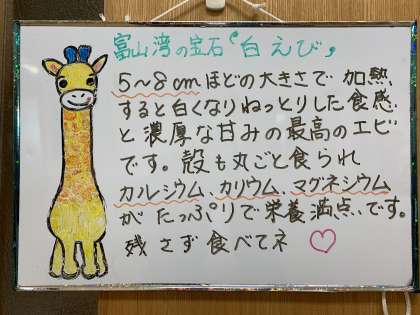 富山湾の宝石“白えび”
5～8cmほどの大きさで 加熱
すると白くなりねっとりした食感
と濃厚な甘みの最高のエビ
です。殻も丸ごと食られ
カルシウム、カリウム、マグネシウム
が たっぷりで栄養満点です。
残さず 食べてネ ♡